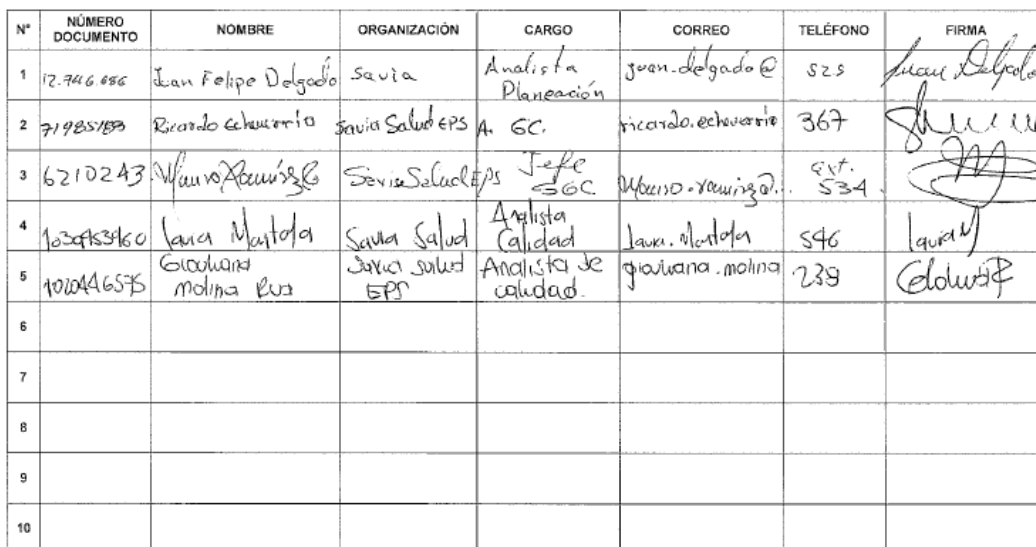 N° NÚMERO DOCUMENTO NOMBRE ORGANIZACIÓN CARGO CORREO TELÉFONO FIRMA
1 12.746.686 Juan Felipe Delgado Savia Analista Planeación juan.delgado@ 525 Juan Delgado
2 Ricardo Echeverría Savia Salud EPS A. GC. ricardo.echeverria 367
3 6210243 Mauro Ramírez Savia Salud EPS Jefe SGC Mauro.ramirez@. Ext. 534
4 Savia Salud Analista Calidad 546
5 1020446575 Molina Savia Salud EPS Analista de calidad. molina 239
6
7
8
9
10